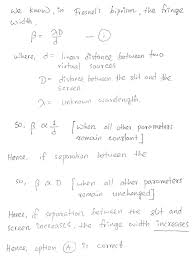 We know, in Fresnel's biprism, the fringe
width,
β = λD/d — ①
where, d = linear distance between two
virtual sources
D = distance between the slit and the
screen
λ = unknown wavelength.
So, β ∝ 1/d [When all other parameters
remain constant]
Hence if separation between the
So, β ∝ D [when all other parameters
remain unchanged]
Hence, if separation between the slit and
screen increases, the fringe width increases
Hence, option Ⓐ is correct